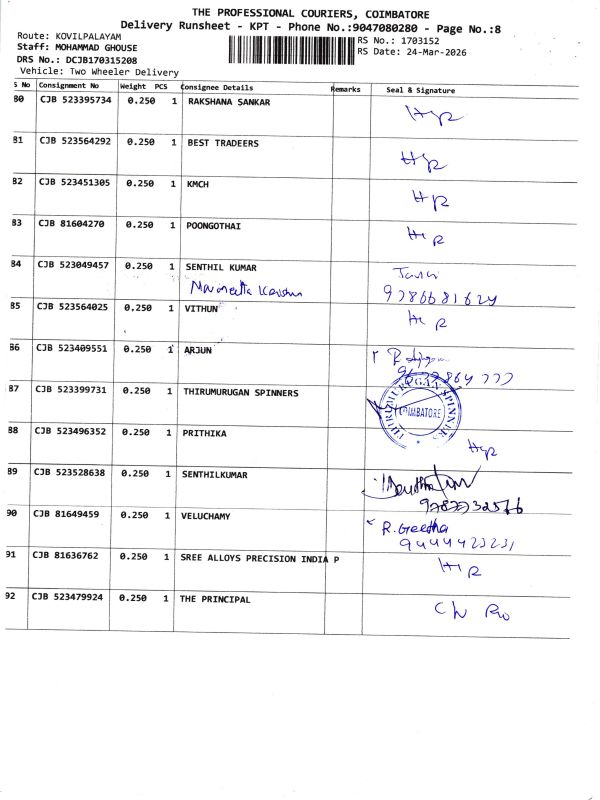 THE PROFESSIONAL COURIERS, COIMBATORE
Delivery Runsheet - KPT - Phone No.:9047080280 - Page No.:8
Route: KOVILPALAYAM
RS No.: 1703152
Staff: MOHAMMAD GHOUSE
RS Date: 24-Mar-2026
DRS No.: DCJB170315208
Vehicle: Two Wheeler Delivery
S No Consignment No Weight PCS Consignee Details Remarks Seal & Signature
80 CJB 523395734 0.250 1 RAKSHANA SANKAR
81 CJB 523564292 0.250 1 BEST TRADEERS
82 CJB 523451305 0.250 1 KMCH
83 CJB 81604270 0.250 1 POONGOTHAI
84 CJB 523049457 0.250 1 SENTHIL KUMAR
9786681624
85 CJB 523564025 0.250 1 VITHUN
86 CJB 523409551 0.250 1 ARJUN
87 CJB 523399731 0.250 1 THIRUMURUGAN SPINNERS
THIRUMURUGAN SPINNERS
COIMBATORE
88 CJB 523496352 0.250 1 PRITHIKA
89 CJB 523528638 0.250 1 SENTHILKUMAR
90 CJB 81649459 0.250 1 VELUCHAMY R. Geetha
9444423231
91 CJB 81636762 0.250 1 SREE ALLOYS PRECISION INDIA P
92 CJB 523479924 0.250 1 THE PRINCIPAL